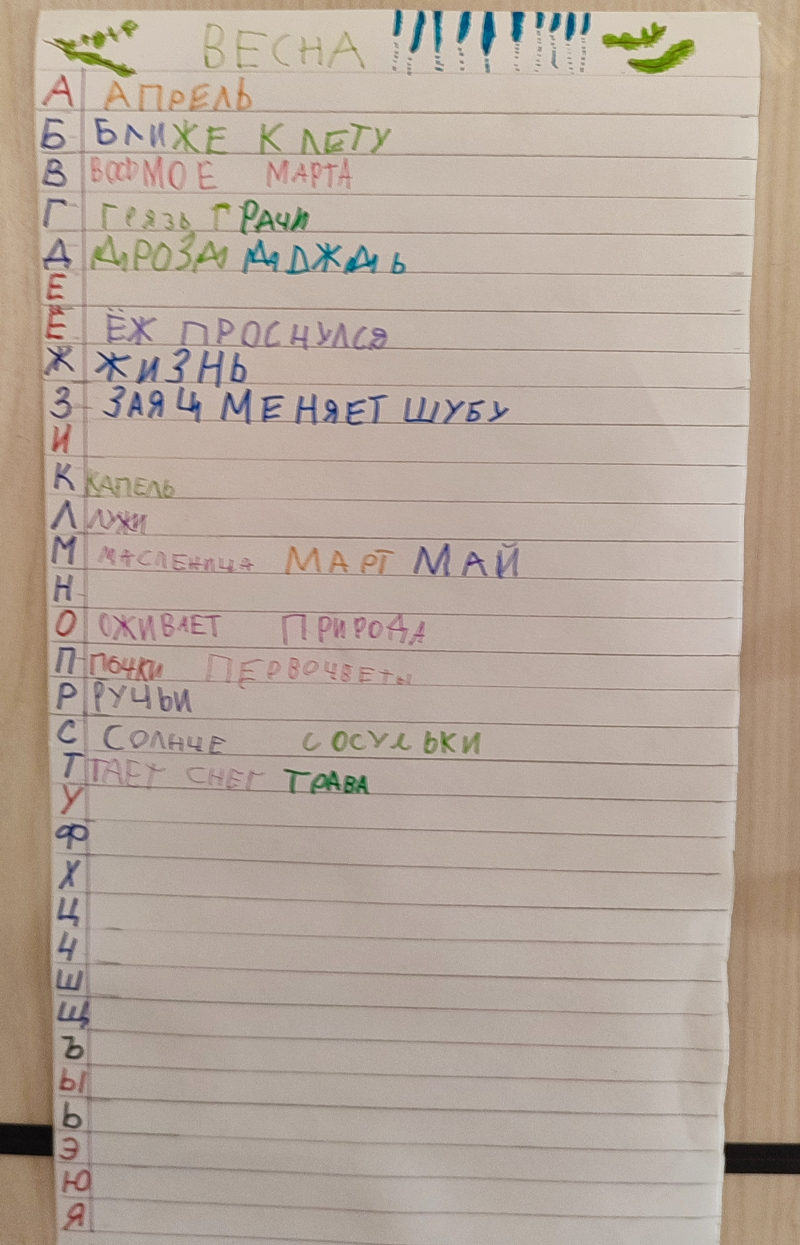 ВЕСНА
А АПРЕЛЬ
Б БЛИЖЕ К ЛЕТУ
В ВОСЬМОЕ МАРТА
Г ГРЯЗЬ ГРАЧИ
Д ДРОЗД ДОЖДЬ
Е
Ё ЁЖ ПРОСНУЛСЯ
Ж ЖИЗНЬ
З ЗАЯЦ МЕНЯЕТ ШУБУ
И
К КАПЕЛЬ
Л ЛУЖИ
М МАСЛЕНИЦА МАРТ МАЙ
Н
О ОЖИВАЕТ ПРИРОДА
П ПОЧКИ ПЕРВОЦВЕТЫ
Р РУЧЬИ
С СОЛНЦЕ СОСУЛЬКИ
Т ТАЕТ СНЕГ ТРАВА
У
Ф
Х
Ц
Ч
Ш
Щ
Ъ
Ы
Ь
Э
Ю
Я